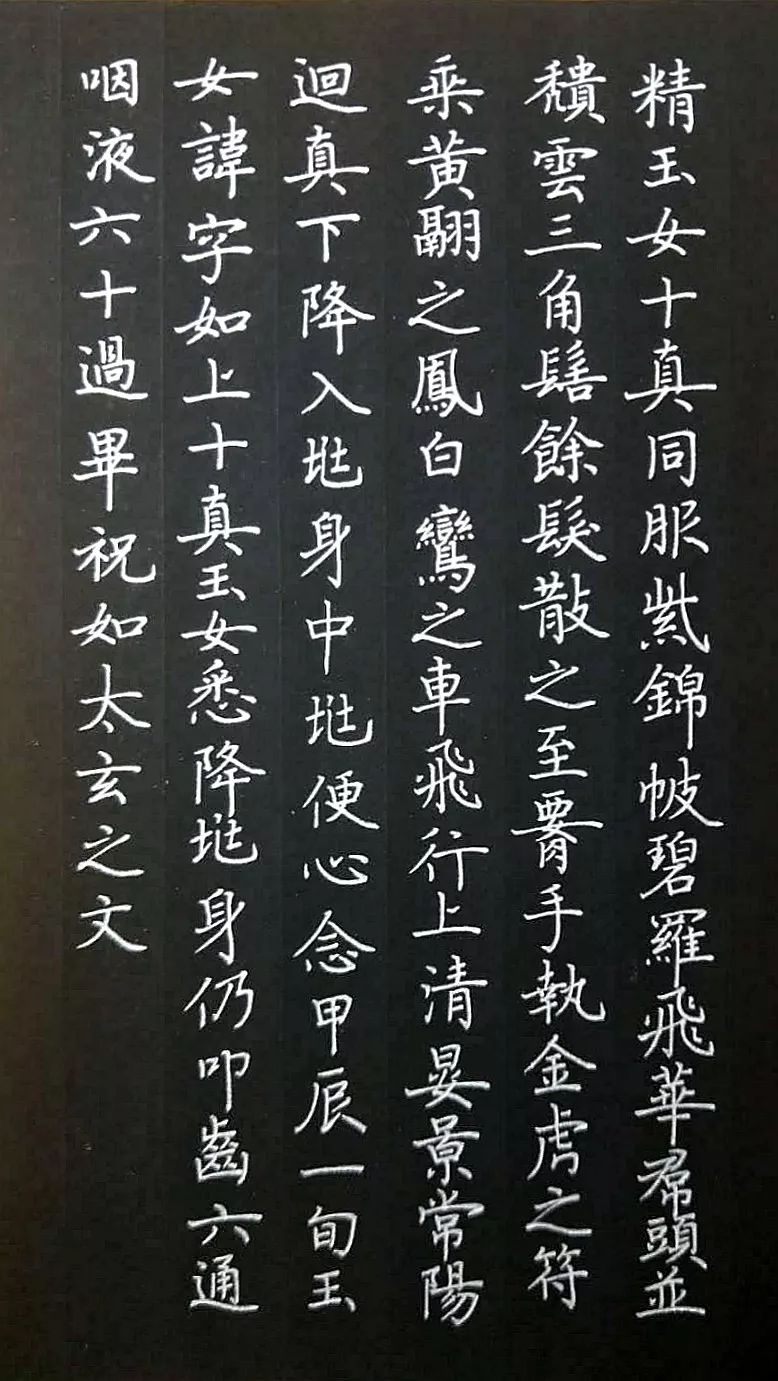 精玉女十真同服紫錦帔碧羅飛華帬頭並
穨雲三角髻餘髮散之至腰手執金虎之符
乘黃翮之鳳白鸞之車飛行上清晏景常陽
迴真下降入兆身中兆便心念甲辰一旬玉
女諱字如上十真玉女悉降兆身仍叩齒六通
咽液六十過畢祝如太玄之文